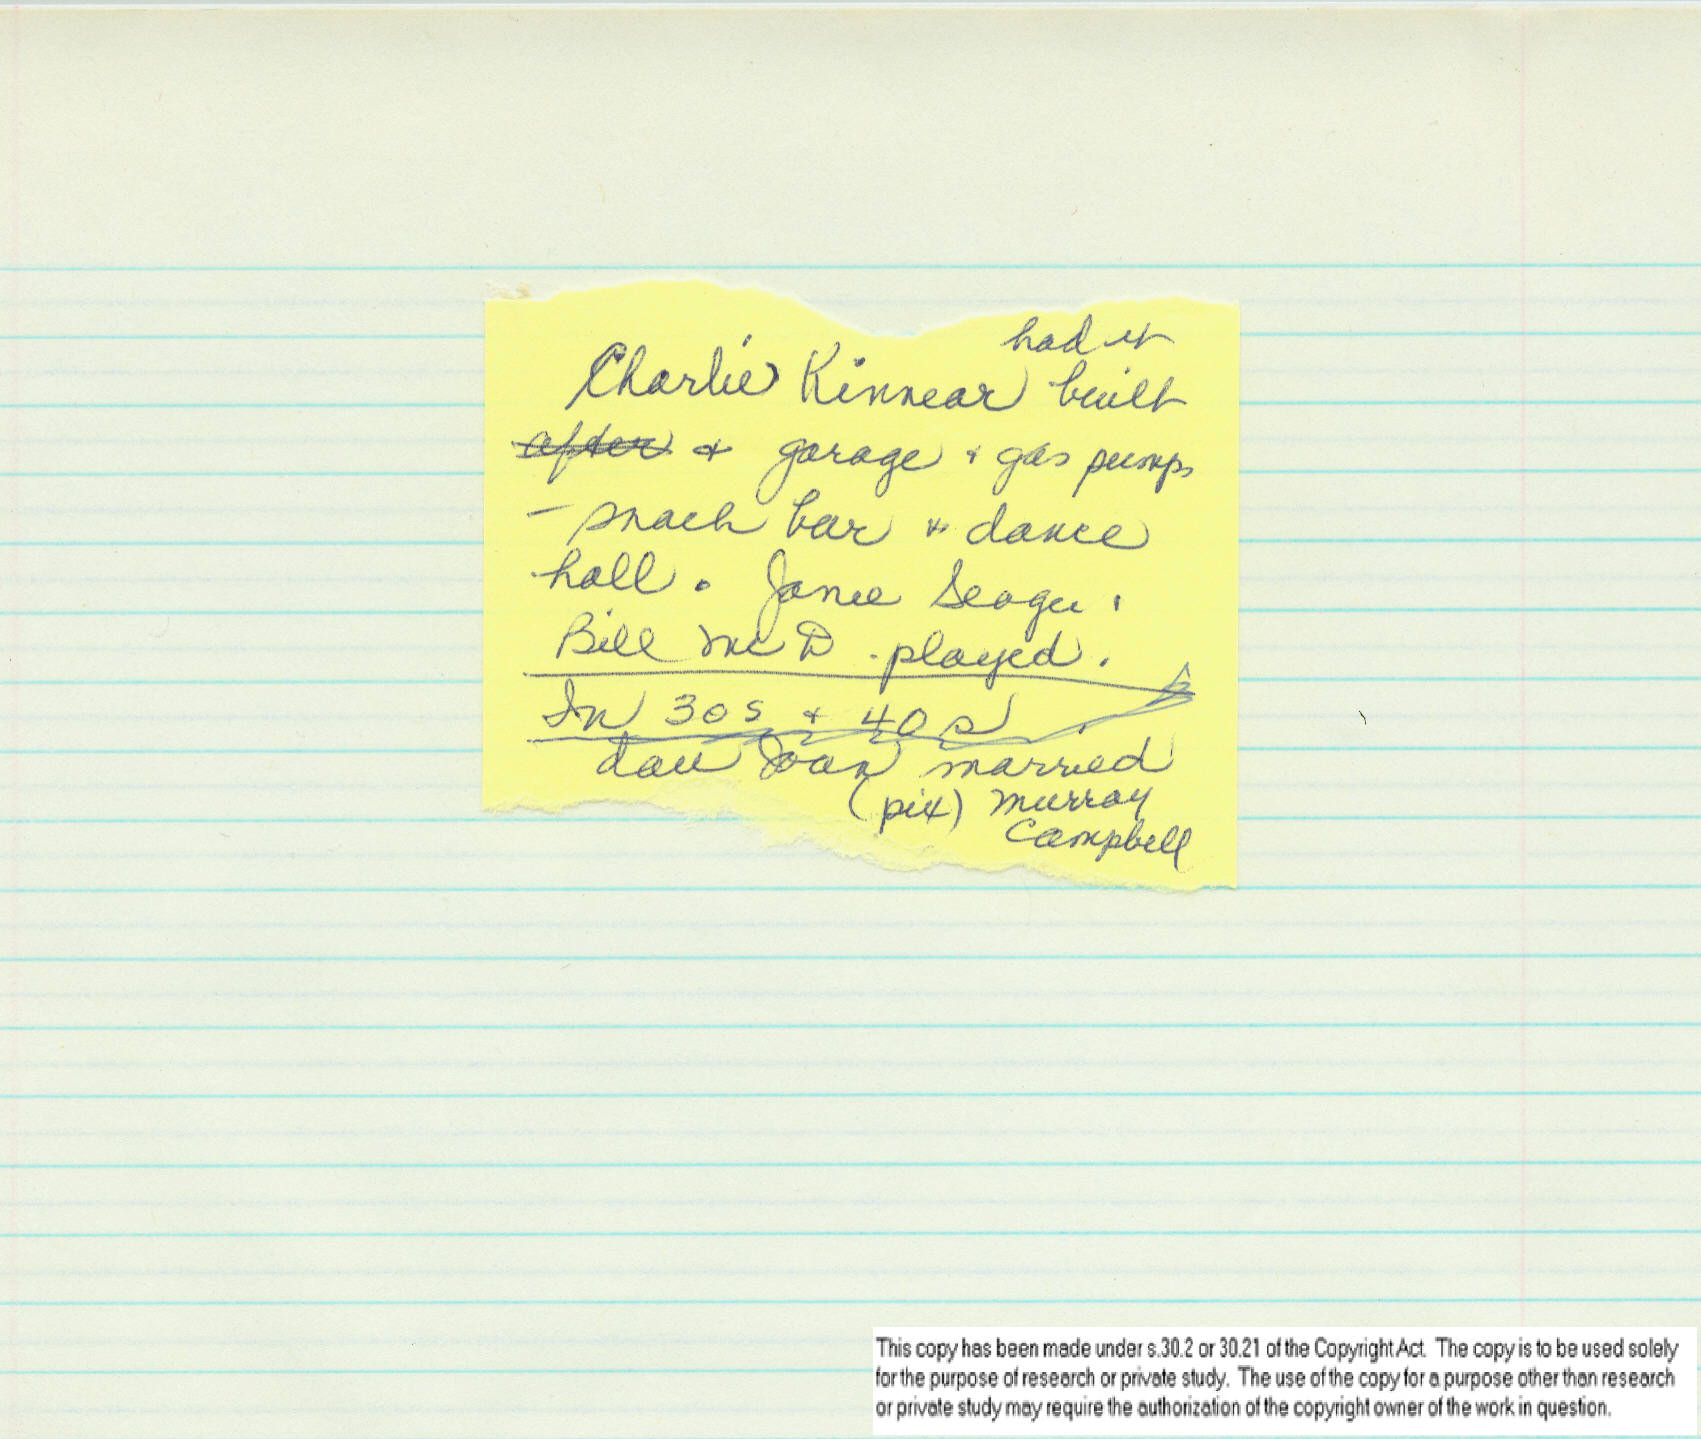 had it
Charlie Kinnear built
after + garage + gas pumps
- snack bar + dance
hall. Janie Seager +
Bill McD. played.
In 30s + 40s
dau Joan married
(pix) Murray
Campbell
This copy has been made under s.30.2 or 30.21 of the Copyright Act. The copy is to be used solely
for the purpose of research or private study. The use of the copy for a purpose other than research
or private study may require the authorization of the copyright owner of the work in question.